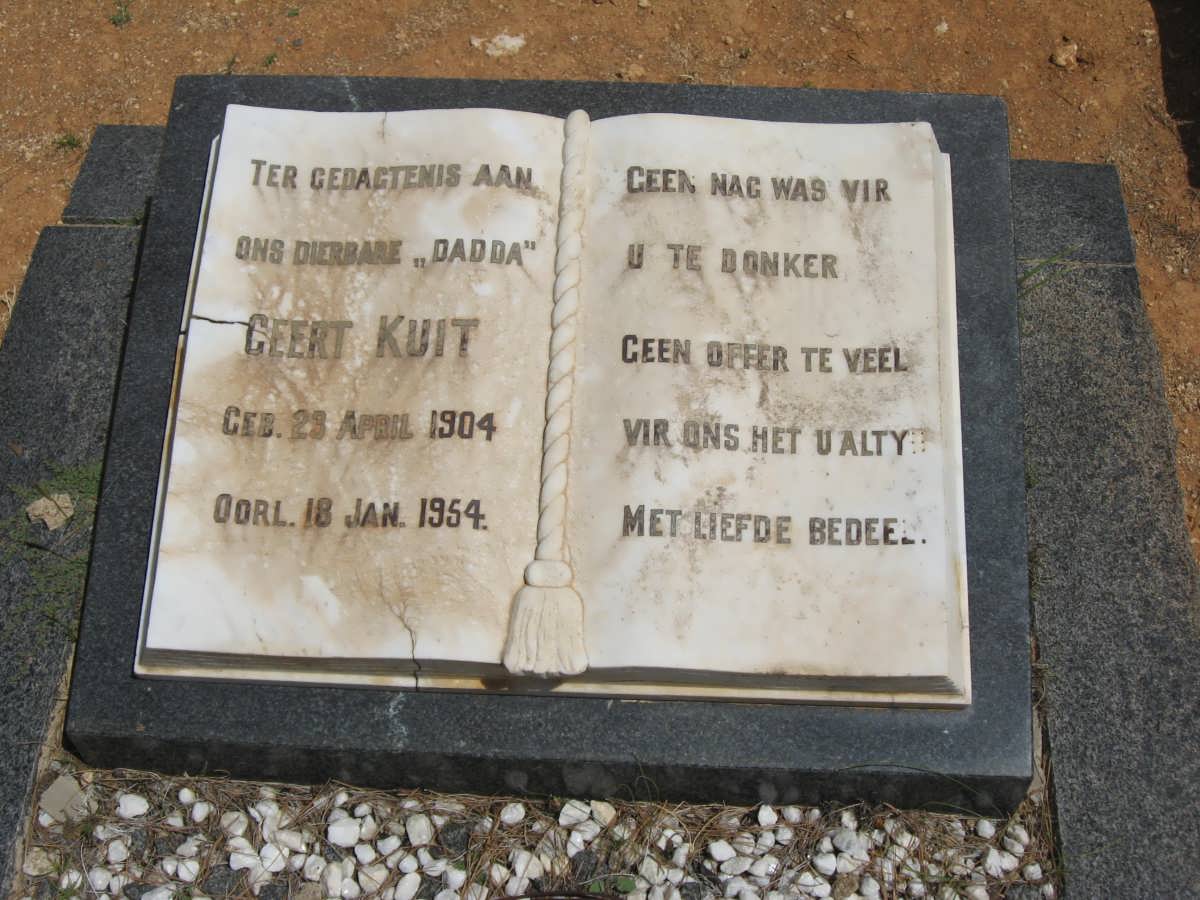 TER GEDAGTENIS AAN
ONS DIERBARE „DADDA"
GEERT KUIT
GEB. 23 APRIL 1904
OORL. 18 JAN. 1954.
GEEN NAG WAS VIR
U TE DONKER
GEEN OFFER TE VEEL
VIR ONS HET U ALTYD
MET LIEFDE BEDEEL.